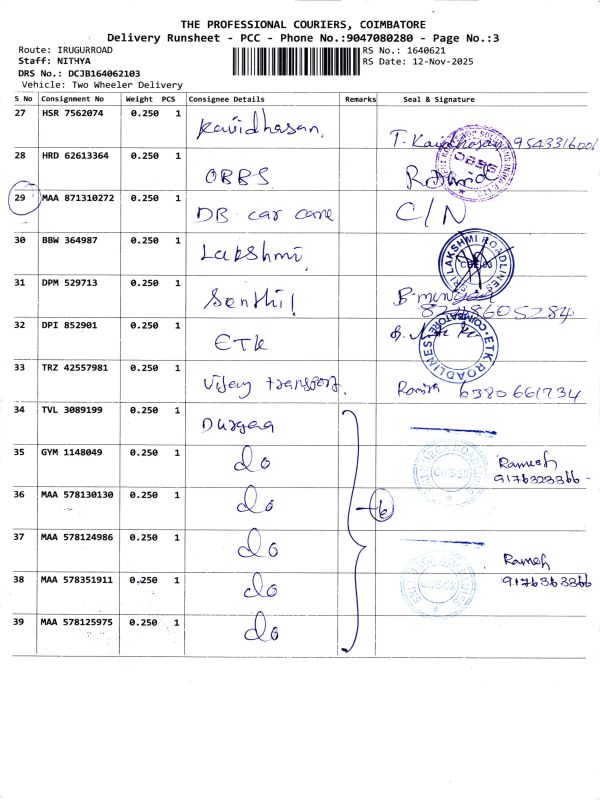 THE PROFESSIONAL COURIERS, COIMBATORE
Delivery Runsheet - PCC - Phone No.:9047080280 - Page No.:3
Route: IRUGURROAD RS No.: 1640621
Staff: NITHYA RS Date: 12-Nov-2025
DRS No.: DCJB164062103
Vehicle: Two Wheeler Delivery
S No Consignment No Weight PCS Consignee Details Remarks Seal & Signature
27 HSR 7562074 0.250 1 Kavidhasan.
28 HRD 62613364 0.250 1 OBBS
29 MAA 871310272 0.250 1 DB car care C/N
30 BBW 364987 0.250 1 Lakshmi SRI LAKSHMI ROADLINES
31 DPM 529713 0.250 1 Senthil
32 DPI 852901 0.250 1 ETK ETK ROADLINES COIMBATORE
33 TRZ 42557981 0.250 1 Vijay transport. 6380661734
34 TVL 3089199 0.250 1 Durgaa
35 GYM 1148049 0.250 1 do Ramesh
36 MAA 578130130 0.250 1 do 6
37 MAA 578124986 0.250 1 do
38 MAA 578351911 0.250 1 do Ramesh
39 MAA 578125975 0.250 1 do